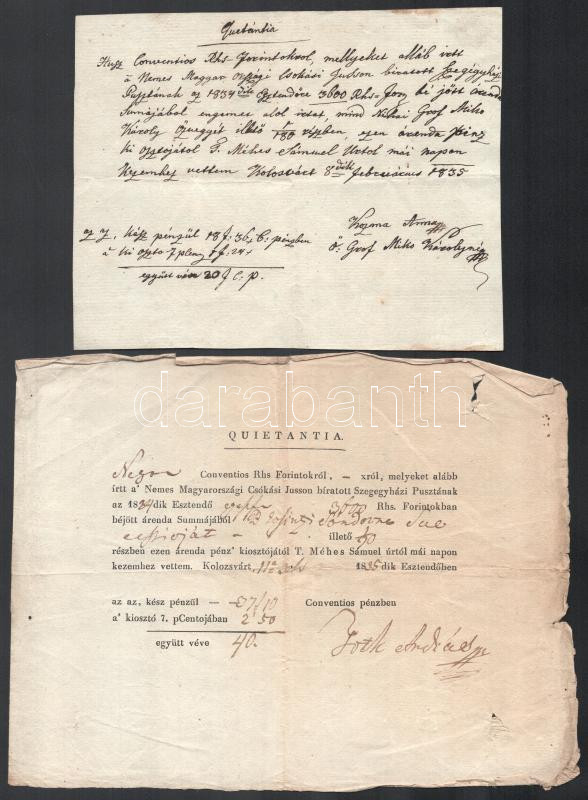 Quetántia
Husz Conventios Rhs Forintokrol, mellyeket alláb irtt
à Nemes Magyar országi Csokási Jusson biratott Szegegyházi
Pusztának az 1834dik Esztendőre 3600 Rhs-for, bé jött árenda
Summájából engemet alol irtat, mind Néhai Groff Miko
Károly Özvegyét illető 1/180 részben, ezen árenda Pénz
ki osztojától T. Méhes Sámuel Urtol mái napon
Kezemhez vettem Kolosvárt 8dik februárius 1835
az az, kész pénzül 18 f: 36, C. pénzben
à ki oszto 7 pCen 1 f: 24 x
együtt véve 20 f c. p.
Kozma Anna
Ö. Groff Miko Károlyné
darabanth
QUIETANTIA.
Negyven Conventios Rhs Forintokról, – xról, melyeket alább
írtt a' Nemes Magyarországi Csókási Jusson bíratott Szegegyházi Pusztának
az 1834dik Esztendő 3600 Rhs. Forintokban
béjött árenda Summájából Sándorné
illető
részben ezen árenda pénz' kiosztójától T. Méhes Sámuel úrtól mái napon
kezemhez vettem. Kolozsvárt 1835dik Esztendőben
az az, kész pénzűl – 37/10 Conventios pénzben
a' kiosztó 7. pCentojában 2 50
együtt véve 40.
Toth András